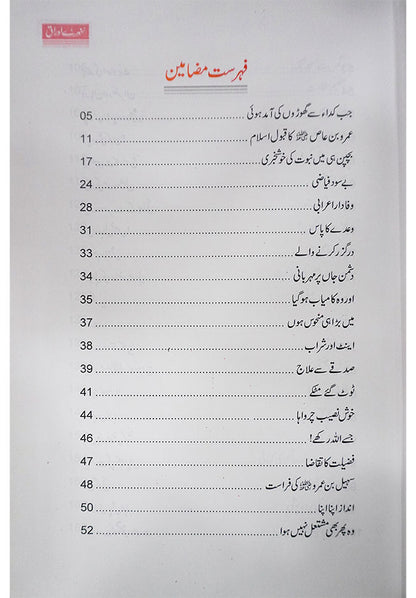 سنہرے اوراق
فہرست مضامین
جب کداء سے گھوڑوں کی آمد ہوئی 05
عمرو بن عاص ؓ کا قبول اسلام 11
بچپن ہی میں نبوت کی خوشخبری 17
بے سود فیاضی 24
وفادار اعرابی 28
وعدے کا پاس 31
درگزر کرنے والے 33
دشمن جاں پر مہربانی 34
اور وہ کامیاب ہوگیا 35
میں بڑا ہی منحوس ہوں 37
اینٹ اور شراب 38
صدقے سے علاج 39
ٹوٹ گئے مٹکے 41
خوش نصیب چرواہا 44
جسے اللہ رکھے! 46
فضیلت کا تقاضا 47
سہیل بن عمرو ؓ کی فراست 48
انداز اپنا اپنا 50
وہ پھر بھی مشتعل نہیں ہوا 52